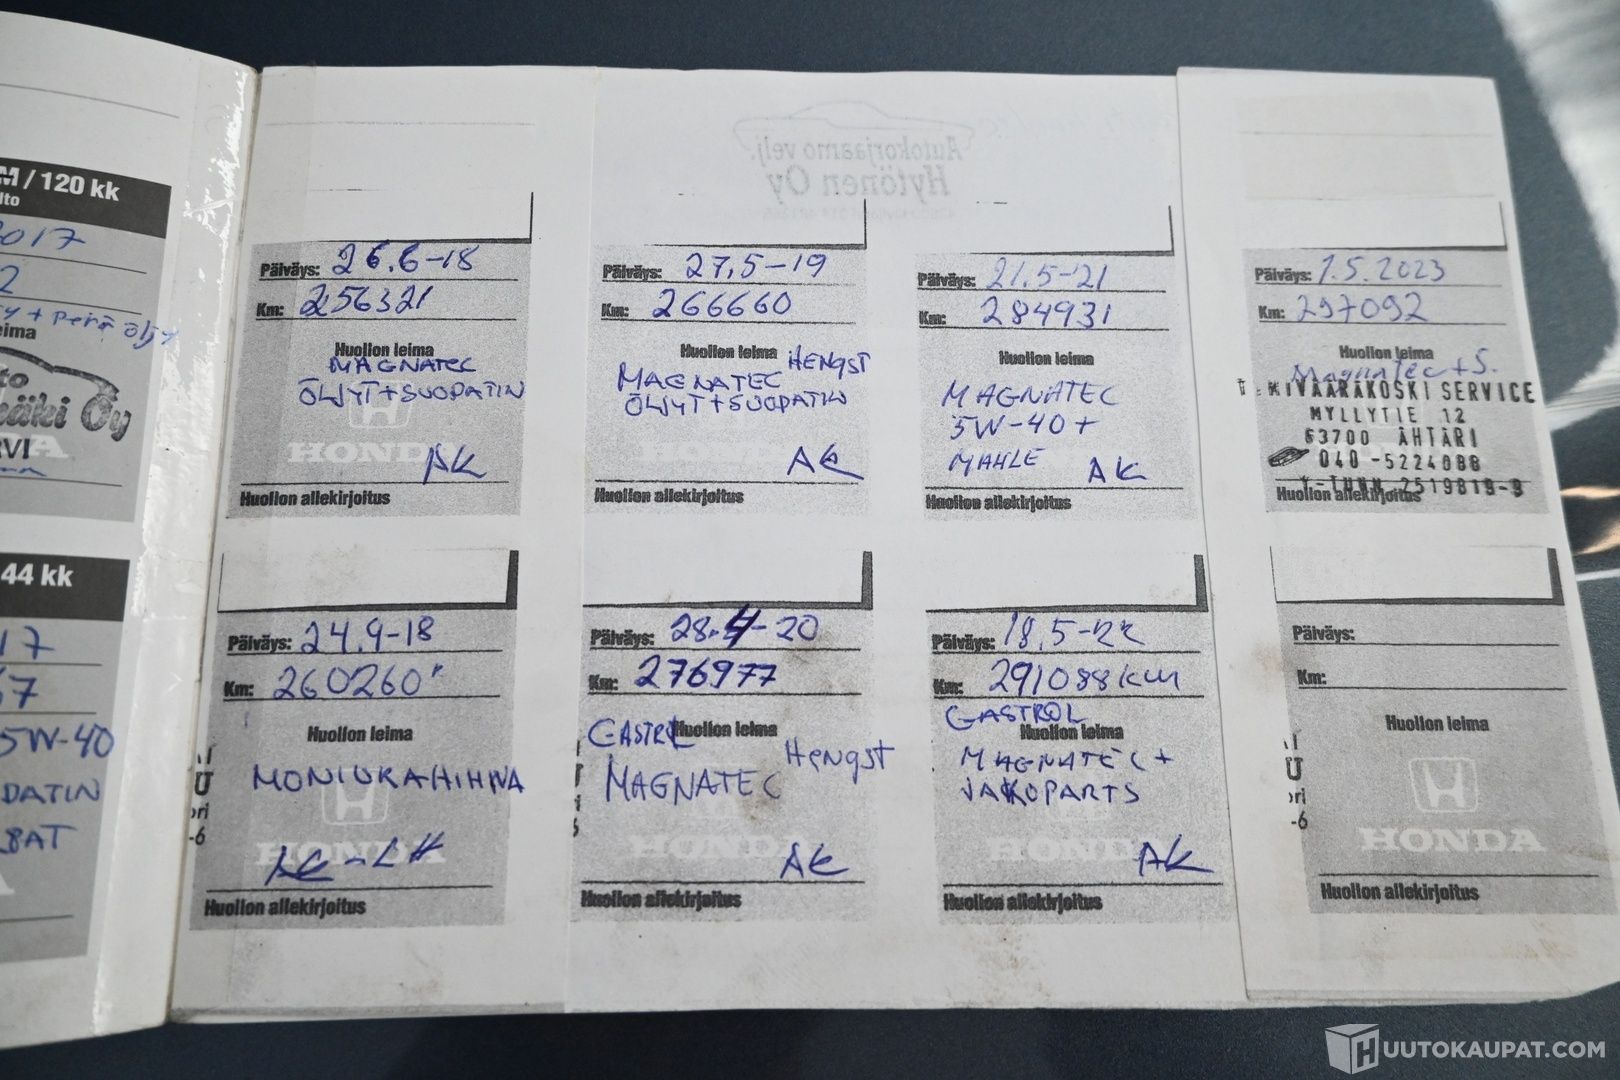 M / 120 kk
lto
2017
2
y + perä öljy
eima
to
äki Oy
RVI
44 kk
17
67
5W-40
DATIN
Autokorjaamo velj.
Hytönen Oy
Päiväys: 26.6-18
Km: 256321
Huollon leima
MAGNATEC
ÖLJYT+SUODATIN
HONDA
AK
Huollon allekirjoitus
Päiväys: 27.5-19
Km: 266660
Huollon leima HENGST
MAGNATEC
ÖLJYT+SUODATIN
HONDA
AK
Huollon allekirjoitus
Päiväys: 21.5-21
Km: 284931
Huollon leima
MAGNATEC
5W-40+
MAHLE
AK
Huollon allekirjoitus
Päiväys: 1.5.2023
Km: 297092
Huollon leima
Magnatec+S.
MIVAARAKOSKI SERVICE
MYLLYTIE 12
63700 ÄHTÄRI
040-5224088
Y-TUNN 2519819-3
Huollon allekirjoitus
Päiväys: 24.9-18
Km: 260260
Huollon leima
MONIURAHIHNA
HONDA
Huollon allekirjoitus
Päiväys: 28.4-20
Km: 276977
CASTROL Huollon leima
Hengst
MAGNATEC
HONDA
AK
Huollon allekirjoitus
Päiväys: 18.5-22
Km: 291088km
CASTROL
Huollon leima
MAGNATEC+
JAKOPARTS
HONDA
AK
Huollon allekirjoitus
Päiväys:
Km:
Huollon leima
HONDA
Huollon allekirjoitus
HUUTOKAUPAT.COM